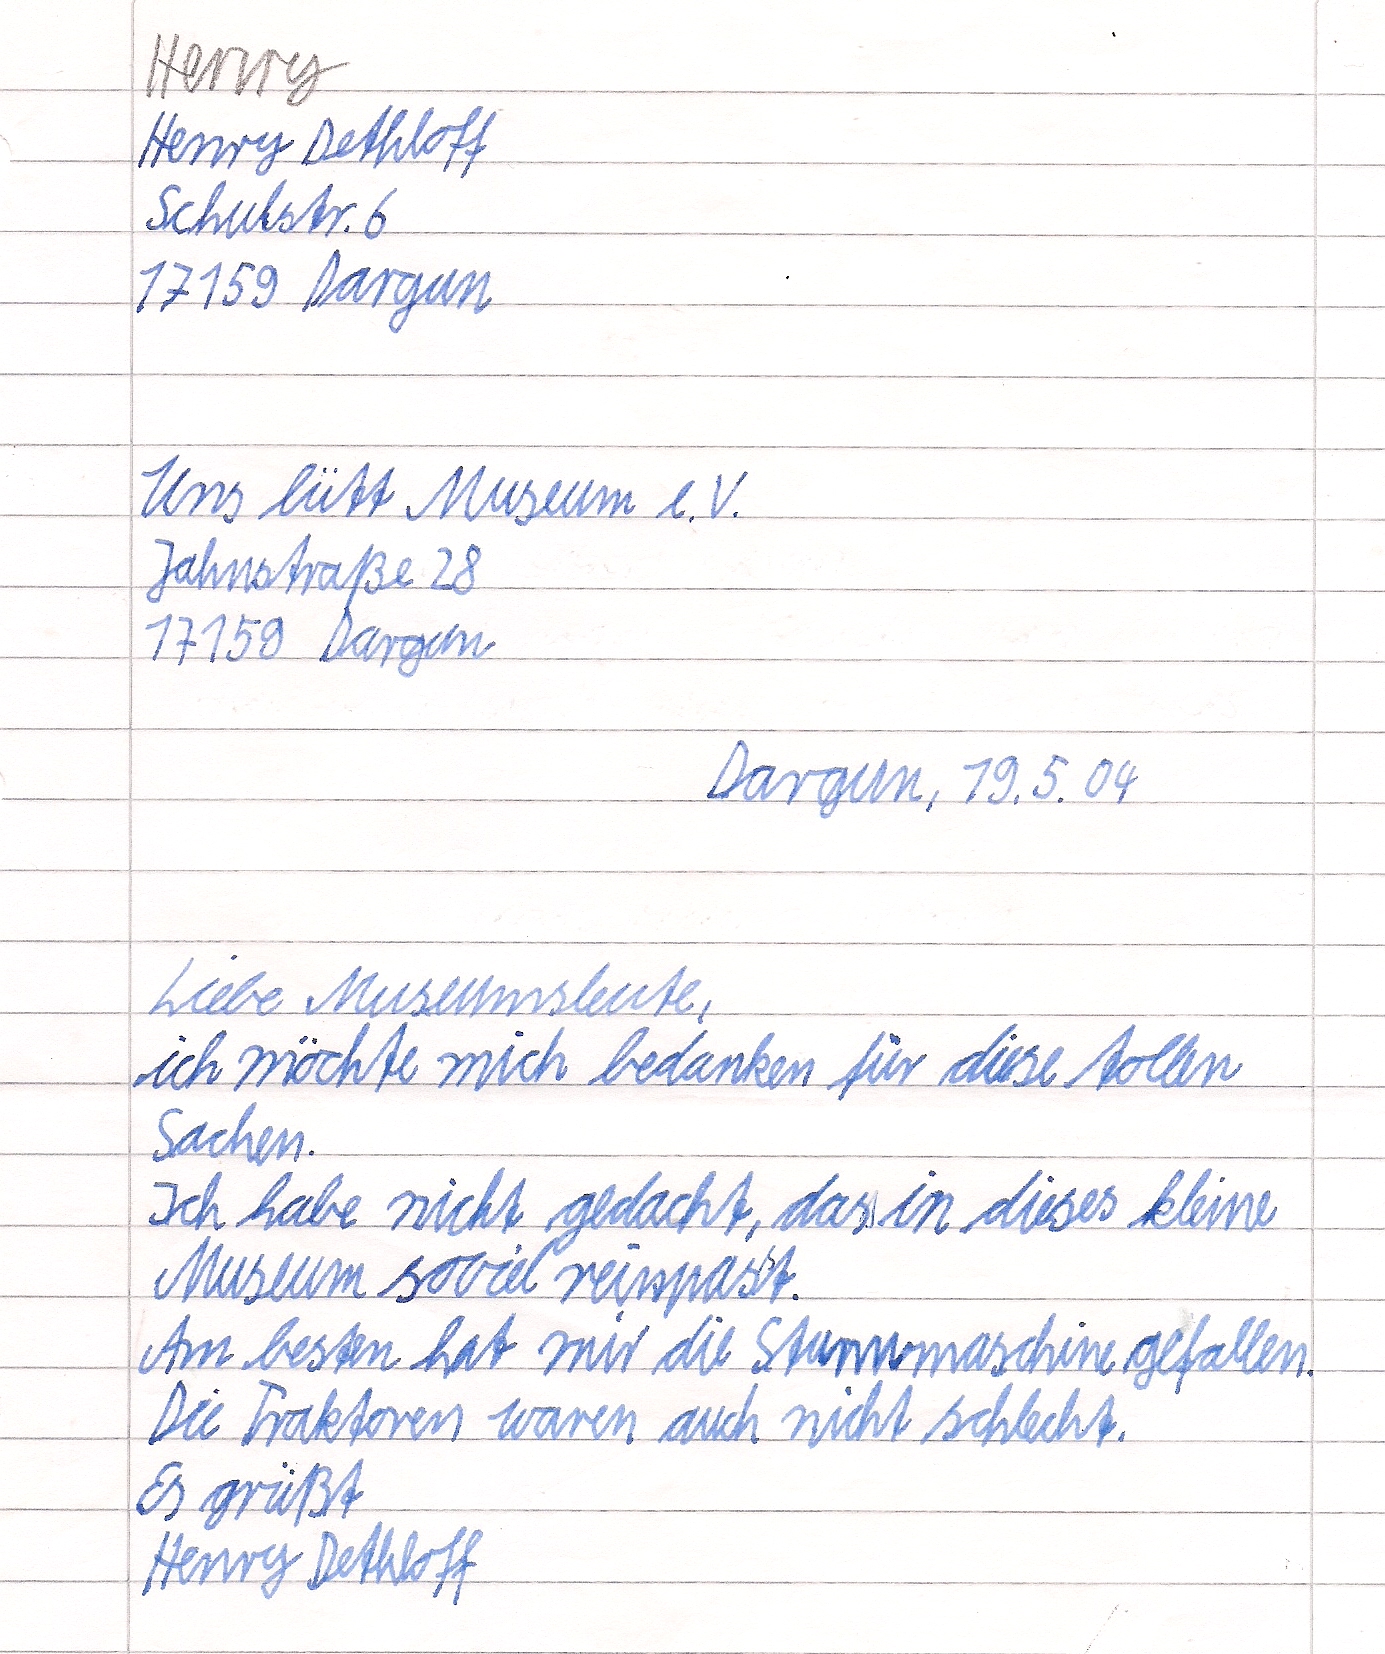 Henry
Henry Dethloff
Schulstr. 6
17159 Dargun
Uns lütt Museum e.V.
Jahnstraße 28
17159 Dargun
Dargun, 19.5.04
Liebe Museumsleute,
ich möchte mich bedanken für diese tollen
Sachen.
Ich habe nicht gedacht, das in dieses kleine
Museum soviel reinpasst.
Am besten hat mir die gefallen.
Die Traktoren waren auch nicht schlecht.
Es grüßt
Henry Dethloff